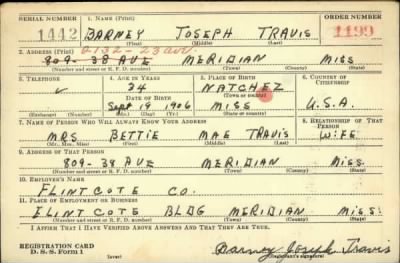 SERIAL NUMBER 1. NAME (Print) ORDER NUMBER
1442 BARNEY JOSEPH TRAVIS 1199
(First) (Middle) (Last)
2. ADDRESS (Print) 2132-23 ave.
809-38 AVE MERIDIAN MISS
(Number and street or R. F. D. number) (Town) (County) (State)
3. TELEPHONE 4. AGE IN YEARS 5. PLACE OF BIRTH 6. COUNTRY OF CITIZENSHIP
34 NATCHEZ
DATE OF BIRTH (Town or county)
Sept 19 1906 MISS U.S.A.
(Exchange) (Number) (Mo.) (Day) (Yr.) (State or country)
7. NAME OF PERSON WHO WILL ALWAYS KNOW YOUR ADDRESS 8. RELATIONSHIP OF THAT PERSON
MRS BETTIE MAE TRAVIS WIFE
(Mr., Mrs., Miss) (First) (Middle) (Last)
9. ADDRESS OF THAT PERSON
809-38 AVE MERIDIAN MISS.
(Number and street or R. F. D. number) (Town) (County) (State)
10. EMPLOYER'S NAME
FLINTCOTE CO.
11. PLACE OF EMPLOYMENT OR BUSINESS
FLINTCOTE BLDG MERIDIAN MISS.
(Number and street or R. F. D. number) (Town) (County) (State)
I AFFIRM THAT I HAVE VERIFIED ABOVE ANSWERS AND THAT THEY ARE TRUE.
REGISTRATION CARD
D. S. S. Form 1 Barney Joseph Travis
(over) (Registrant's signature)